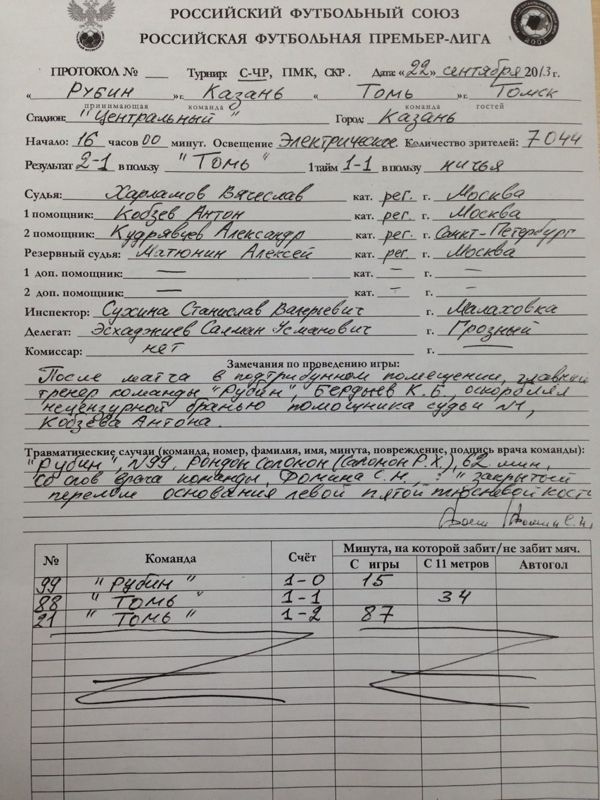 РОССИЙСКИЙ ФУТБОЛЬНЫЙ СОЮЗ
РОССИЙСКАЯ ФУТБОЛЬНАЯ ПРЕМЬЕР-ЛИГА
ПРОТОКОЛ № ___ Турнир: С-ЧР, ПМК, СКР. Дата: «22» сентября 2013 г.
« Рубин » г. Казань « Томь » г. Томск
принимающая команда команда гостей
Стадион: "Центральный" Город: Казань
Начало: 16 часов 00 минут. Освещение Электрическое Количество зрителей: 7044
Результат 2-1 в пользу "Томь" 1 тайм 1-1 в пользу ничья
Судья: Харламов Вячеслав кат. рег. г. Москва
1 помощник: Кобзев Антон кат. рег. г. Москва
2 помощник: Кудрявцев Александр кат. рег. г. Санкт-Петербург
Резервный судья: Матюнин Алексей кат. рег. г. Москва
1 доп. помощник: — кат. – г. –
2 доп. помощник: — кат. – г. –
Инспектор: Сухина Станислав Валерьевич г. Малаховка
Делегат: Эсхаджиев Салман Усманович г. Грозный
Комиссар: нет г. —
Замечания по проведению игры:
После матча в подтрибунном помещении, главный
тренер команды "Рубин", Бердыев К.Б., оскорблял
нецензурной бранью помощника судьи №1,
Кобзева Антона.
Травматические случаи (команда, номер, фамилия, имя, минута, повреждение, подпись врача команды):
"Рубин", №99, Рондон Саломон (Саломон Р.Х.), 62 мин,
со слов врача команды, Фомина С.Н., : "закрытый
перелом основания левой пятой плюсневой кости
№ Команда Счёт Минута, на которой забит/не забит мяч.
С игры С 11 метров Автогол
99 "Рубин" 1-0 15
88 "Томь" 1-1 34
21 "Томь" 1-2 87